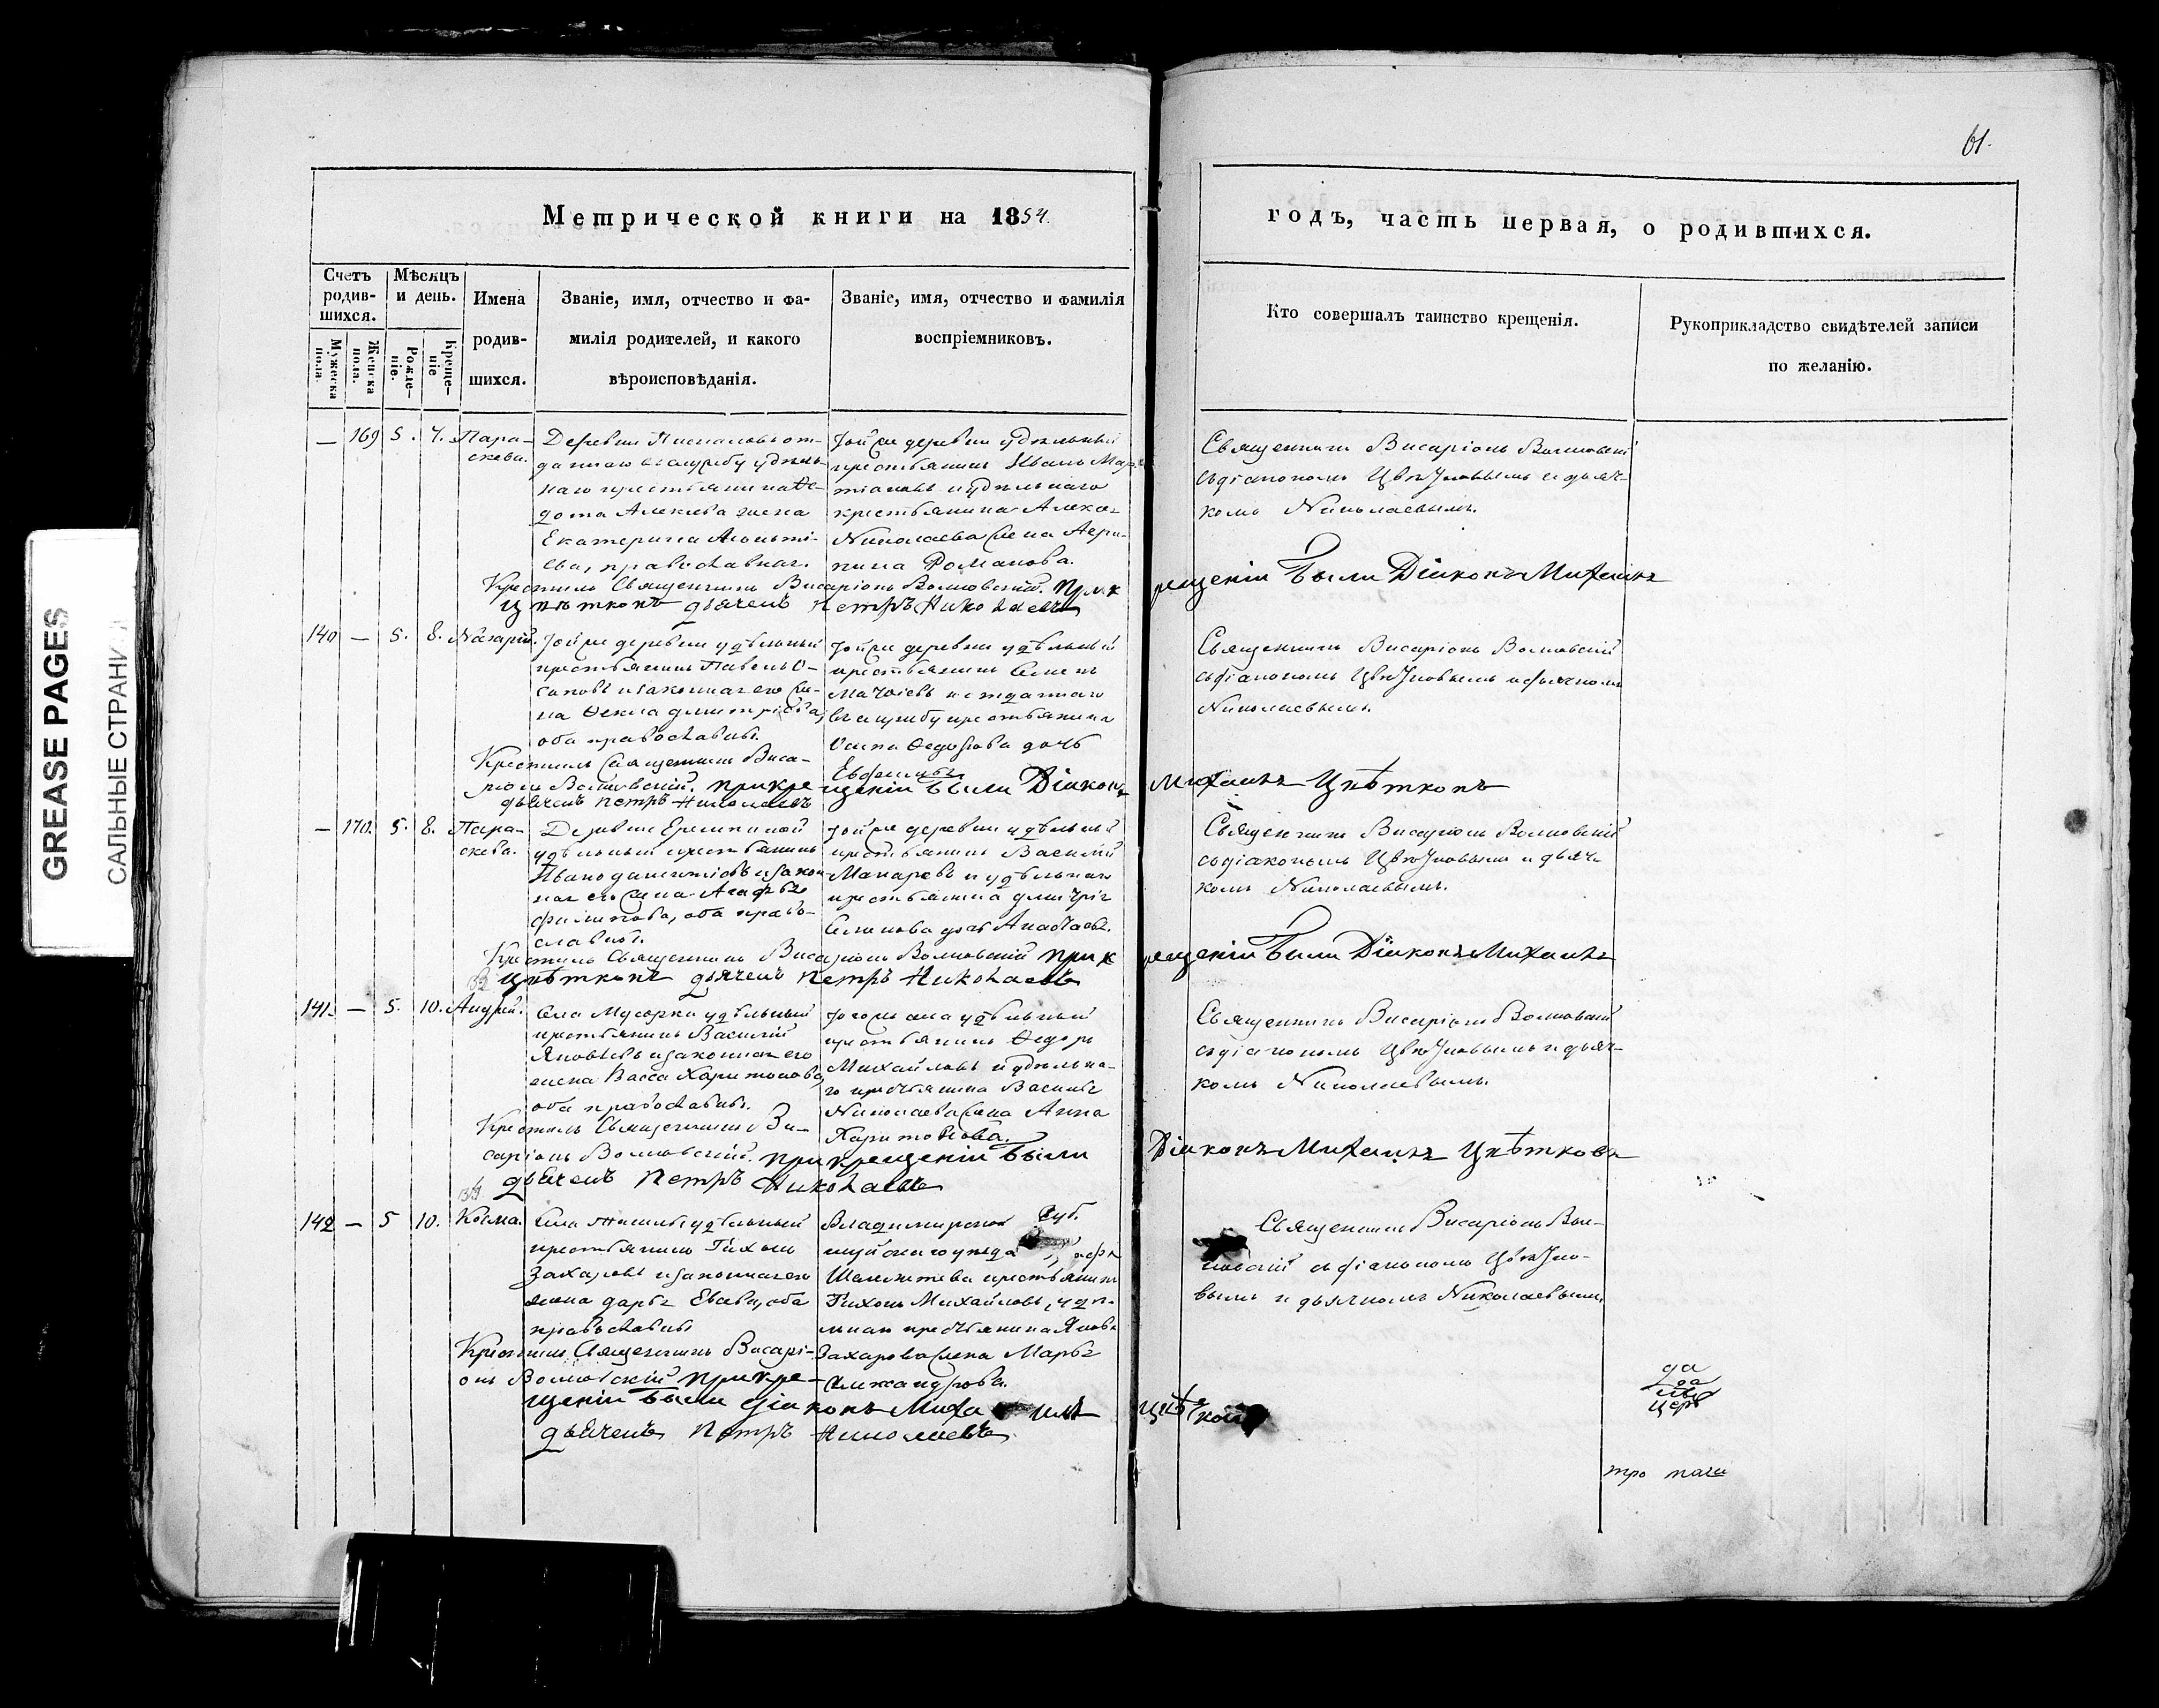 GREASE PAGES
САЛЬНЫЕ СТРАНИ
61.
Метрической книги на 1854.
годъ, часть первая, о родившихся.
Счетъ родив-шихся.
Мужеска пола.
Женска пола.
Мѣсяцъ и день.
Рожде-ніе.
Креще-ніе
Имена
родив-
шихся.
Званіе, имя, отчество и фа-
милія родителей, и какого
вѣроисповѣданія.
Званіе, имя, отчество и фамилія
воспріемниковъ.
Кто совершалъ таинство крещенія.
Рукоприкладство свидѣтелей записи
по желанію.
— 169 5. 7. Пара-
скева.
Деревни
даннаго въ службу удѣль-
наго крестьянина Ѳе-
дота Алексѣева жена
Екатерина
ева, православная.
Той же деревни удѣльный
крестьянинъ Иванъ
и удѣльнаго
крестьянина Алексѣя
Николаева жена Агри-
пина Романова.
Священникъ Висаріонъ
съ діакономъ Цвѣтковымъ и дьяч-
комъ Николаевымъ.
Крестилъ Священникъ Висаріонъ При крещеніи были Діаконъ Михаилъ
Цвѣтковъ дьячекъ Петръ Николаевъ
140 — 5. 8. Назарій.
Той же деревни удѣльный
крестьянинъ Павелъ О-
сиповъ и законная его же-
на Ѳекла Дмитріева,
оба православные.
Той же деревни удѣльный
крестьянинъ Семенъ
и отданнаго
въ службу крестьянина
Ѳедорова дочь
Евфимія
Священникъ Висаріонъ
съ діакономъ Цвѣтковымъ и дьячкомъ
Николаевымъ.
Крестилъ Священникъ Виса-
ріонъ При крещеніи были Діаконъ Михаилъ Цвѣтковъ
дьячекъ Петръ Николаевъ
— 170. 5. 8. Пара-
скева.
Деревни
удѣльный крестьянинъ
Иванъ и закон-
ная его жена Агафья
Филипова, оба право-
славные.
Той же деревни удѣльный
крестьянинъ Василій
Макаровъ и удѣльнаго
крестьянина Дмитрія
Семенова дочь
Священникъ Висаріонъ
съ діакономъ Цвѣтковымъ и дьяч-
комъ Николаевымъ.
Крестилъ Священникъ Висаріонъ При крещеніи были Діаконъ Михаилъ
Цвѣтковъ дьячекъ Петръ Николаевъ
141. — 5. 10. Андрей.
Села Мусорки удѣльный
крестьянинъ Василій
Яковлевъ и законная его
жена Васса Харитонова,
оба православные.
Того же села удѣльный
крестьянинъ Ѳедоръ
Михайловъ и удѣльна-
го крестьянина Василія
Николаева жена Анна
Харитонова.
Священникъ Висаріонъ
съ діакономъ Цвѣтковымъ и дьяч-
комъ Николаевымъ.
Крестилъ Священникъ Ви-
саріонъ При крещеніи были Діаконъ Михаилъ Цвѣтковъ
дьячекъ Петръ Николаевъ
142 — 5 10. Косма.
Села удѣльный
крестьянинъ Тихонъ
Захаровъ и законная его
жена Дарья оба
православные
Владимирской Губ.
Шуйскаго уѣзда
крестьянинъ
Тихонъ Михайловъ, удѣ-
льнаго крестьянина Якова
Захарова жена Марья
Александрова.
Священникъ Висаріонъ
съ діакономъ Цвѣтко-
вымъ и дьячкомъ Николаевымъ.
Крестилъ Священникъ Висарі-
онъ При кре-
щеніи были діаконъ Михаилъ Цвѣтковъ
дьячекъ Петръ Николаевъ